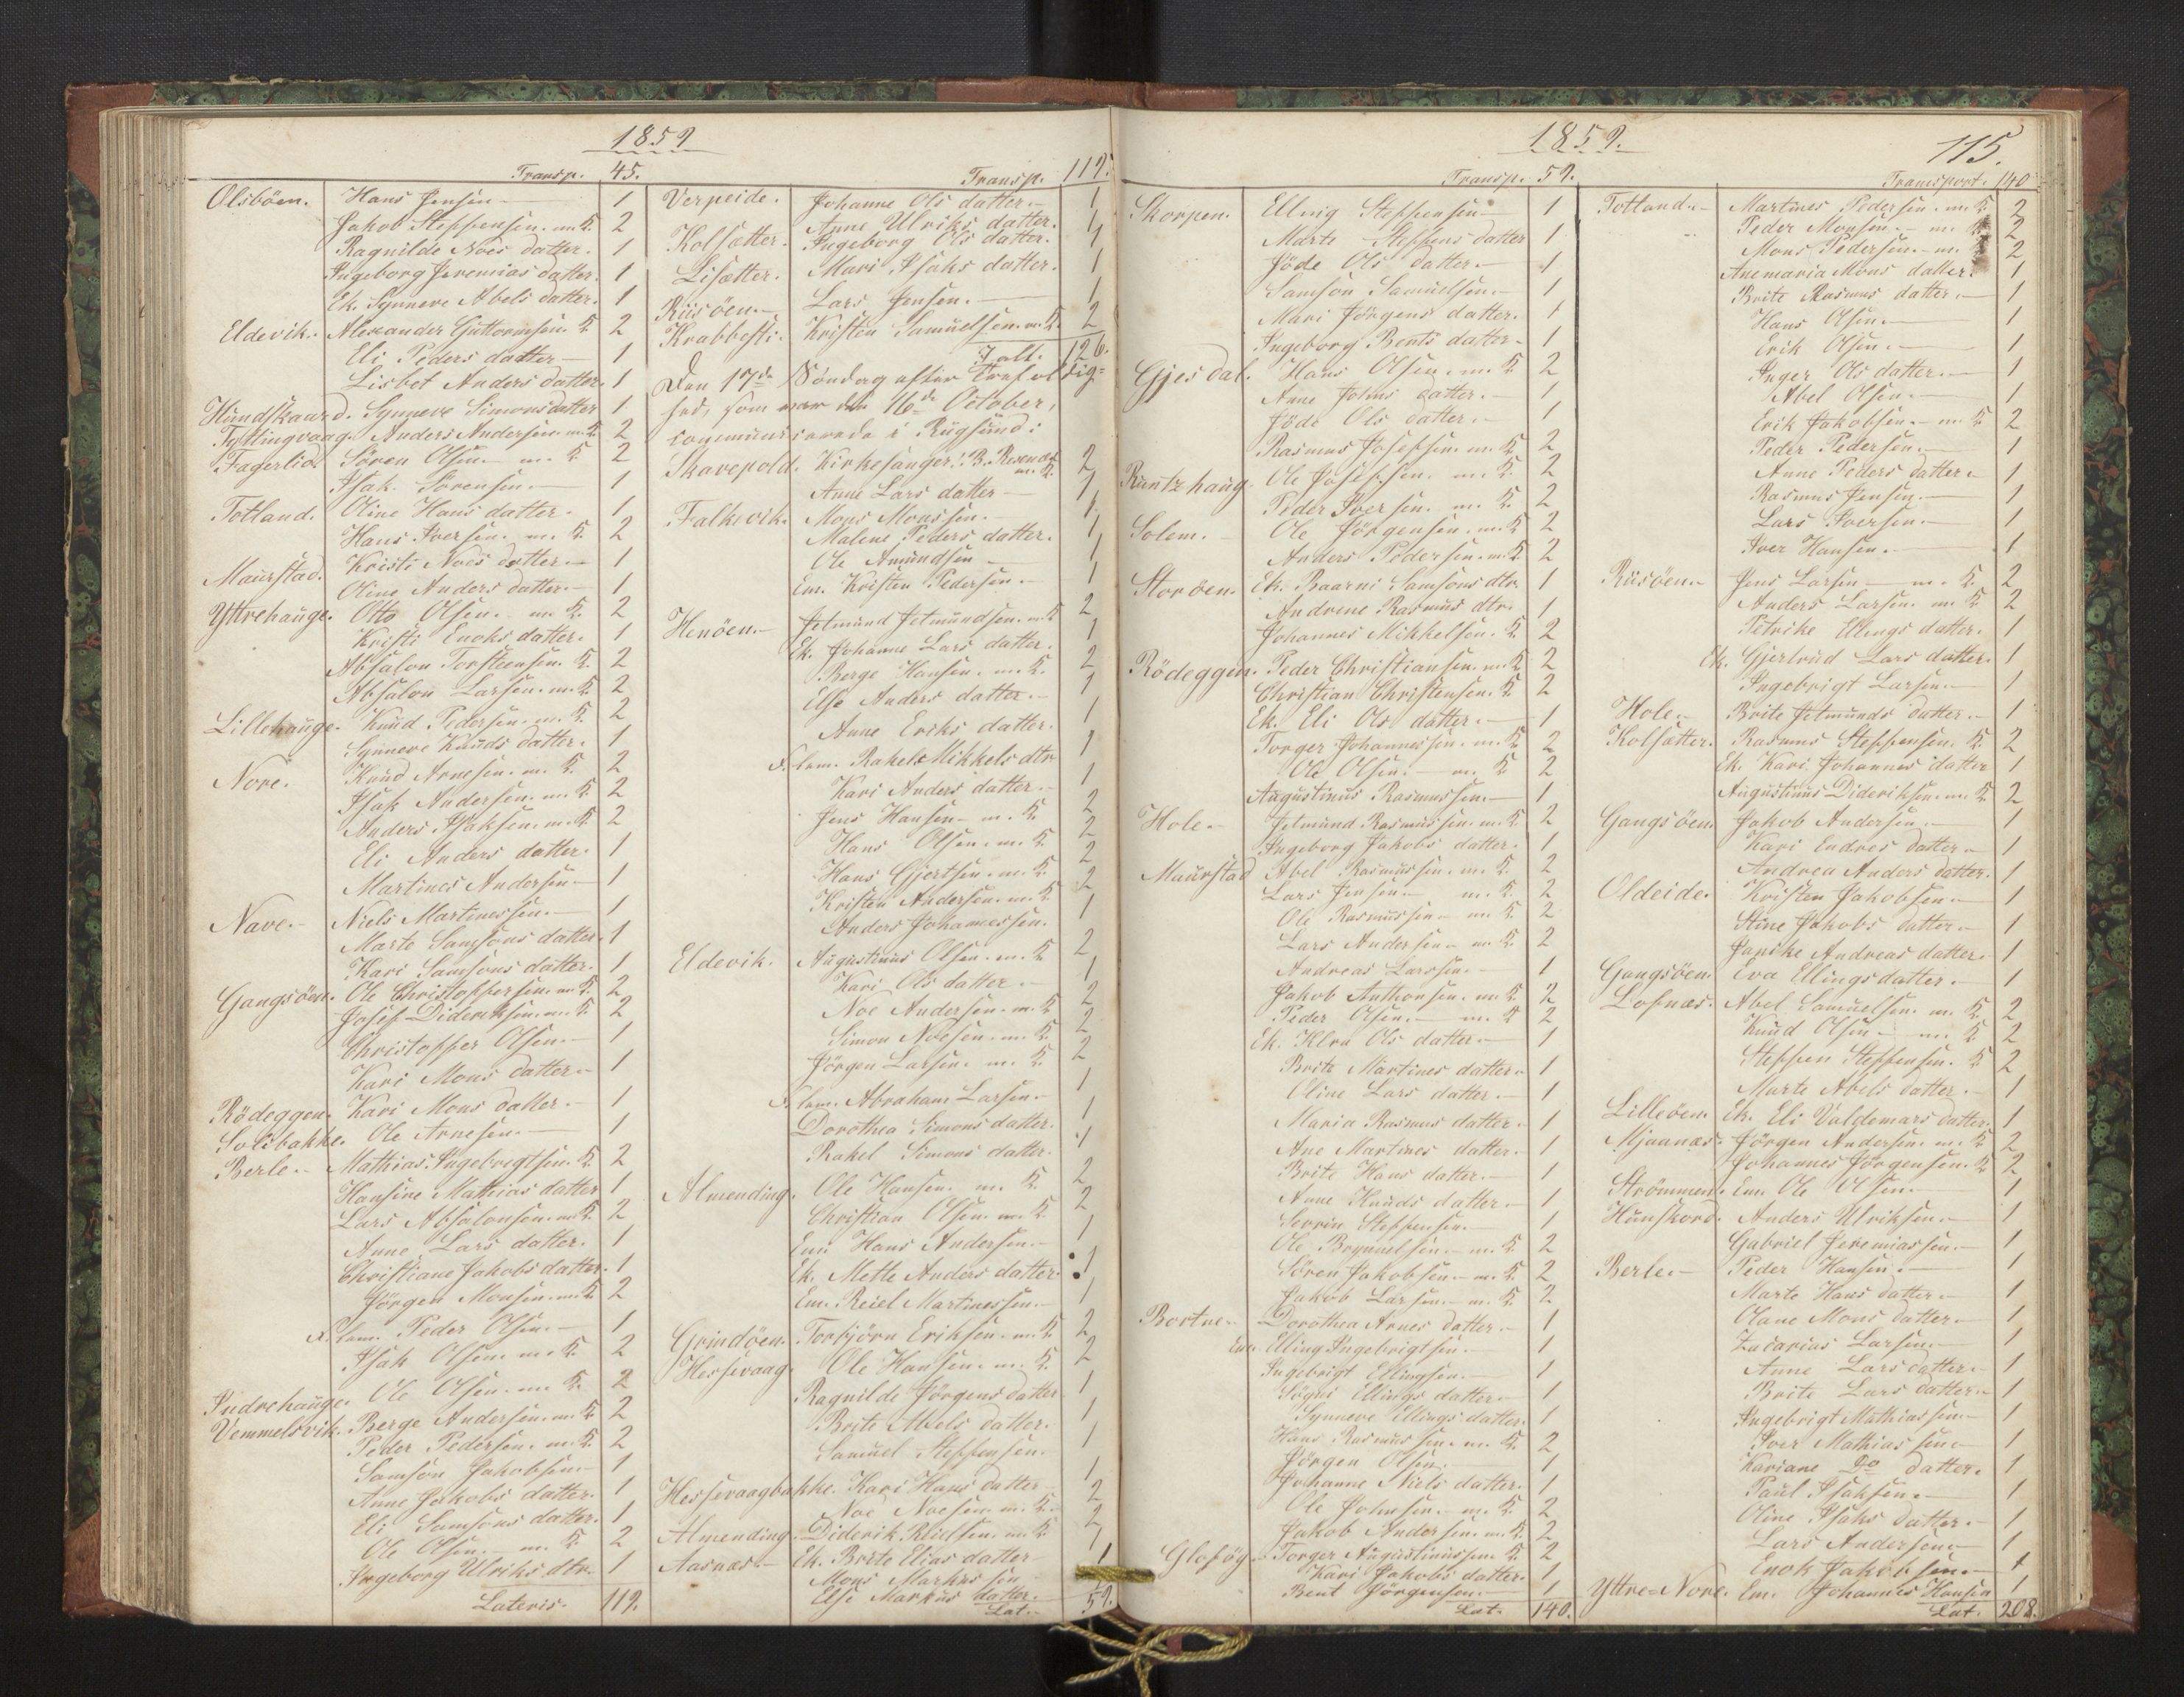 1859
Transp. 45.
Olsböen. Hans Jensen 1
Jakob Steffensen. m. K. 2
Ragnilde Noës datter. 1
Ingeborg Jeremias datter. 1
Ek. Synneve Abels datter. 1
Eldevik. Alexander Guttormsen. K. 2
Eli Peders datter 1
Lisbet Anders datter. 1
Hundskaard. Synneve Simons datter 1
Tytlingvaag. Anders Andersen. m. K. 2
Fagerlid. Sören Olsen. m. K. 2
Isak Sörensen. 1
Totland. Oline Hans datter. 1
Hans Iversen. m. K. 2
Maurstad. Kristi Noës datter. 1
Oline Anders datter. 1
Yttrehauge. Otto Olsen. m. K. 2
Kristi Enoks datter. 1
Absalon Torsteensen. K. 2
Absalon Larsen. m. K. 2
Lillehauge. Knud Pedersen. m. K. 2
Synneve Knuds datter. 1
Nore. Knud Arnesen. m. K. 2
Isak Andersen. m. K. 2
Anders Isaksen. m. K. 2
Eli Anders datter. 1
Martines Andersen. 1
Nave. Niels Martinessen. 1
Marte Samsons datter. 1
Kari Samsons datter. 1
Gangsöen. Ole Christoffersen. m. K. 2
Josef Dideriksen. m. K. 2
Christoffer Olsen. 1
Kari Mons datter. 1
Rödeggen. Kari Mons datter. 1
Solibakke. Ole Arnesen. 1
Berle. Mathias Ingebrigtsen. K. 2
Hansine Mathias datter 1
Lars Absalonsen. m. K. 2
Anne Lars datter. 1
Christiane Jakobs datter. 1
Jörgen Monsen. m. K. 2
F. lem. Peder Olsen. 1
Isak Olsen. m. K. 2
Ole Olsen. m. K. 2
Indrehauge. Berge Andersen. m. K. 2
Vemmelsvik. Peder Pedersen. m. K. 2
Samson Jakobsen 1
Anne Jakobs datter. 1
Eli Samsons datter. 1
Ole Olsen. m. K. 2
Ingeborg Ulriks dtr. 1
Lateris. 119.
Transp. 119.
Verpeide. Johanne Ols datter. 1
Anne Ulriks datter. 1
Kolsætter. Ingeborg Ols datter. 1
Lisætter. Mari Isaks datter. 1
Riisöen. Lars Jensen. 1
Krabbesti. Kristen Samuelsen. m. K. 2
I alt. 126.
Den 17de Söndag efter Trefoldig-
hed, som var den 16de October,
communicerede i Rugsund:
Skavepold. Kirkesanger B. Rosenes m. K. 2
Anne Lars datter 1
Falkevik. Mons Monssen. 1
Malene Peders datter. 1
Ole Amundsen 1
Em. Kristen Pedersen. 1
Henöen. Jetmund Jetmundsen. m. K. 2
Ek. Johanne Lars datter. 1
Berge Hansen. m. K. 2
Else Anders datter. 1
Anne Eriks datter. 1
F. lem. Rakel Mikkels dtr 1
Kari Anders datter. 1
Jens Hansen. m. K. 2
Hans Olsen. m. K. 2
Hans Gjertsen. m. K. 2
Kristen Andersen. m. K. 2
Anders Johannessen. 1
Eldevik. Augustinus Olsen. m. K. 2
Kari Ols datter. 1
Noe Andersen. m. K. 2
Simon Noesen. m. K. 2
Jörgen Larsen. m. K. 2
F. lem. Abraham Larsen. 1
Dorothea Simons datter. 1
Rakel Simons datter. 1
Almending. Ole Hansen. m. K. 2
Christian Olsen. m. K. 2
Em. Hans Andersen. 1
Ek. Mette Anders datter. 1
Em. Reiel Martinessen. 1
Grindöen. Torbjörn Eriksen. m. K. 2
Hessevaag. Ole Hansen. m. K. 2
Ragnilde Jörgens datter 1
Brite Abels datter. 1
Samuel Steffensen. 1
Hessevaagbakke. Kari Hans datter 1
Noe Noesen. m. K. 2
Almending. Diderik Reielsen. m. K. 2
Aasnæs. Ek. Brite Elias datter 1
Mons Markussen 1
Else Markus datter.
Lat. 59.
1859.
115.
Transp. 59.
Skorpen. Elling Steffensen 1
Marte Steffens datter 1
Jöde Ols datter. 1
Samson Samuelsen. 1
Mari Jörgens datter. 1
Ingeborg Bents datter. 1
Gjesdal. Hans Olsen. m. K. 2
Anne Johns datter. 1
Jöde Ols datter. 1
Rasmus Josefsen. m. K. 2
Runtzhaug. Ole Josefsen. m. K. 2
Peder Iversen. m. K. 2
Solem. Ole Jörgensen. m. K. 2
Anders Pedersen. m. K. 2
Storöen. Ek. Baarni Samsons dtr. 1
Andrine Rasmus dtr. 1
Johannes Mikkelsen. K. 2
Rödeggen. Peder Christiansen. m. K. 2
Christian Christensen. K. 2
Ek. Eli Ols datter. 1
Torger Johannessen. m. K. 2
Ole Olsen. m. K. 2
Augustinus Rasmussen. 1
Hole. Jetmund Rasmussen. m. K. 2
Ingeborg Jakobs datter. 1
Maurstad Abel Rasmussen. m. K. 2
Lars Jensen. m. K. 2
Ole Rasmussen. m. K. 2
Lars Andersen. m. K. 2
Andreas Larssen. 1
Jakob Anthonsen. m. K. 2
Peder Olsen. m. K. 2
Ek. Klra Ols datter. 1
Brite Martines datter. 1
Oline Lars datter. 1
Maria Rasmus datter. 1
Ane Martines datter. 1
Brite Hans datter. 1
Anne Knuds datter. 1
Serrin Steffensen. 1
Ole Brynnelsen. m. K. 2
Sören Jakobsen. m. K. 2
Jakob Larsen. m. K. 2
Bortne. Dorothea Arnes datter. 1
Em. Elling Ingebrigtsen. 1
Ingebrigt Ellingsen. 1
Sögni Ellings datter. 1
Synneve Ellings datter. 1
Hans Rasmussen. m. K. 2
Jörgen Olsen. 1
Johanne Niels datter. 1
Ole Johnsen. m. K. 2
Jakob Andersen. m. K. 2
Glosög. Torger Augustinussen. K. 2
Kari Jakobs datter. 1
Bent Jörgensen. 1
Lat. 140.
Transport. 140
Totland. Martines Pedersen. m. K. 2
Peder Monsen. m. K. 2
Mons Pedersen. m. K. 2
Anemaria Mons datter. 1
Brite Rasmus datter. 1
Hans Olsen. 1
Erik Olsen. 1
Inger Ols datter. 1
Abel Olsen. 1
Erik Jakobsen. m. K. 2
Peder Pedersen. 1
Anne Peders datter. 1
Rasmus Jensen. 1
Lars Iversen. 1
Iver Hansen. 1
Riisöen. Jens Larsen m. K. 2
Anders Larsen. m. K. 2
Petrike Ellings datter. 1
Ek. Gjertrud Lars datter. 1
Ingebrigt Larsen. 1
Hole. Brite Jetmunds datter. 1
Kolsætter. Rasmus Steffensen. K. 2
Ek. Kari Johannes datter 1
Augustinus Dideriksen. m. K. 2
Gangsöen. Jakob Andersen. 1
Kari Endres datter. 1
Andrea Anders datter. 1
Oldeide. Kristen Jakobsen. 1
Stine Jakobs datter. 1
Janike Andreas datter. 1
Gangsöen. Eva Ellings datter. 1
Lofnæs. Abel Samuelsen. m. K. 2
Knud Olsen. m. K. 2
Steffen Steffensen. K. 2
Marte Abels datter. 1
Lilleöen. Ek. Eli Valdemars datter. 1
Mjaanæs. Jörgen Andersen. m. K. 2
Johannes Jörgensen. K. 2
Strömmen. Em. Ole Olsen. 1
Hunskord. Anders Ulriksen. 1
Gabriel Jeremiassen. 1
Berle. Peder Hansen. 1
Marte Hans datter. 1
Olane Mons datter. 1
Zacarias Larsen. 1
Anne Lars datter. 1
Brite Lars datter. 1
Ingebrigt Mathiassen. 1
Iver Mathiassen. 1
Kariane Do datter. 1
Paul Isaksen. 1
Oline Isaks datter. 1
Lars Andersen. 1
Enok Jakobsen. 1
Yttre=Nore. Em. Johannes Hansen 1
Lat. 208.